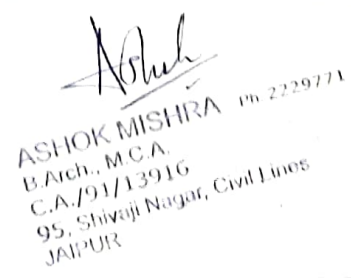 Ashok
ASHOK MISHRA Ph 2229771
B.Arch., M.C.A.
C.A./91/13916
95, Shivaji Nagar, Civil Lines
JAIPUR